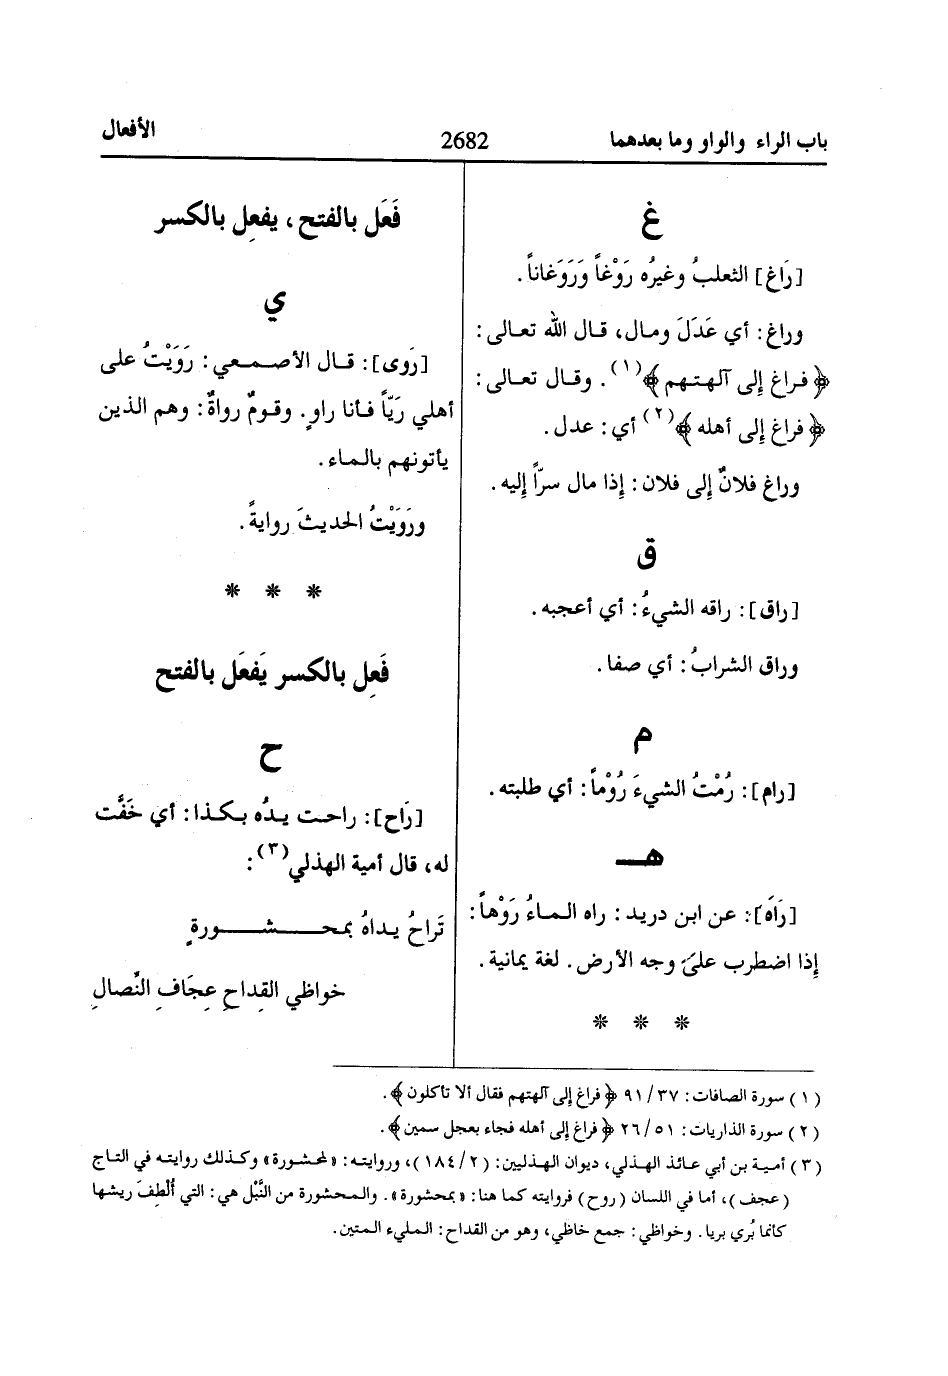 باب الراء والواو وما بعدهما 2682 الأفعال
غ
[رَاغ] الثعلبُ وغيرُه رَوْغاً وَرَوَغاناً.
وراغ: أي عَدَلَ ومال، قال الله تعالى:
﴿فراغ إلى آلهتهم﴾(١). وقال تعالى:
﴿فراغ إلى أهله﴾(٢) أي: عدل.
وراغ فلانٌ إلى فلان: إذا مال سرّاً إليه.
ق
[راق]: راقه الشيءُ: أي أعجبه.
وراق الشرابُ: أي صفا.
م
[رام]: رُمْتُ الشيءَ رُوْماً: أي طلبته.
هـ
[رَاهَ]: عن ابن دريد: راه الماءُ رَوْهاً:
إذا اضطرب على وجه الأرض. لغة يمانية.
* * *
فَعَل بالفتح، يفعِل بالكسر
ي
[رَوى]: قال الأصمعي: رَوَيْتُ على
أهلي رَيّاً فأنا راوٍ. وقومٌ رواةٌ: وهم الذين
يأتونهم بالماء.
ورَوَيْتُ الحديثَ روايةً.
* * *
فَعِل بالكسر يَفعَل بالفتح
ح
[رَاح]: راحت يدُه بكذا: أي خَفَّت
له، قال أمية الهذلي(٣):
تَراحُ يداهُ بمحشورةٍ
خواظي القِداحِ عِجَافِ النِّصالِ
(١) سورة الصافات: ٣٧/ ٩١ ﴿فراغ إلى آلهتهم فقال ألا تأكلون﴾.
(٢) سورة الذاريات: ٥١/ ٢٦ ﴿فراغ إلى أهله فجاء بعجل سمين﴾.
(٣) أمية بن أبي عائذ الهذلي، ديوان الهذليين: (٢/ ١٨٤)، وروايته: «لمحشورة» وكذلك روايته في التاج
(عجف)، أما في اللسان (روح) فروايته كما هنا: «بمحشورة». والمحشورة من النَّبْل هي: التي أُلْطِفَ ريشها
كأنما بُري بريا. وخواظي: جمع خاظي، وهو من القداح: المليء المتين.